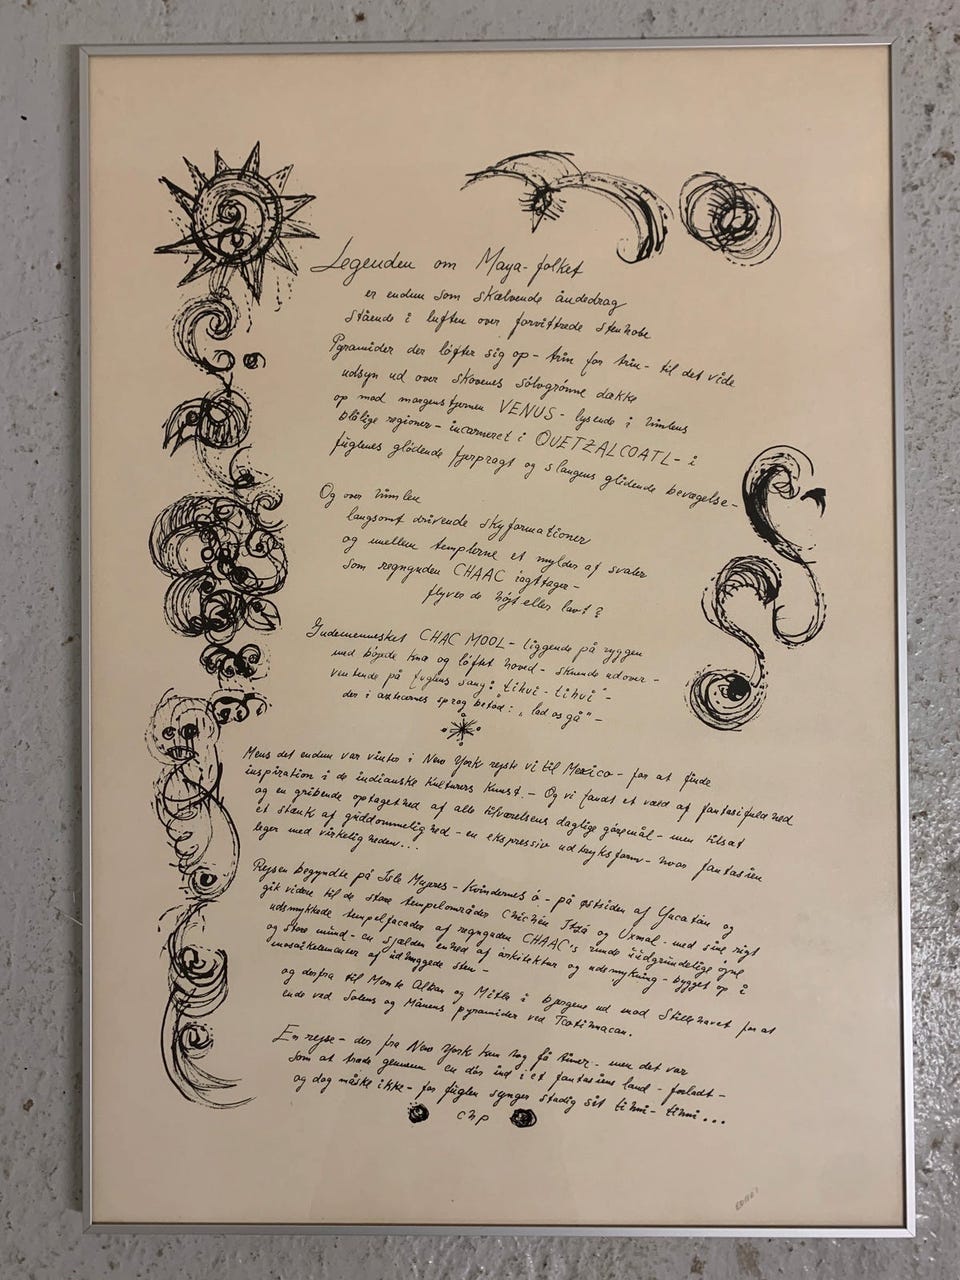 Legenden om Maya-folket
er endnu som skælvende åndedrag
stående i luften over forvittrede stenhobe
Pyramider der løfter sig op - trin for trin - til det vide
udsyn ud over skovenes sølvgrønne dække
op mod morgenstjernen VENUS - lysende i himlens
blålige regioner - incarneret i QUETZALCOATL - i
fuglenes glødende fjerpragt og slangens glidende bevægelse -
Og over himlen
langsomt drivende skyformationer
og mellem templerne et mylder af svaler
som regnguden CHAAC iagttager -
flyver de højt eller lavt?
Gudemennesket CHAC MOOL - liggende på ryggen
med bøjede knæ og løftet hoved - skuende udover -
ventende på fuglens sang: "tihui - tihui" -
der i aztecernes sprog betød: "lad os gå" -
Mens det endnu var vinter i New York rejste vi til Mexico - for at finde
inspiration i de indianske kulturers kunst. - Og vi fandt et væld af fantasifuldhed
og en gribende optagethed af alle tilværelsens daglige gøremål - men tilsat
et stænk af guddommelighed - en ekspressiv udtryksform - hvor fantasien
leger med virkeligheden...
Rejsen begyndte på Isle Mujeres - Kvindernes ø - på østsiden af Yucatan og
gik videre til de store tempelområder Chichén Itzá og Uxmal - med sine rigt
udsmykkede tempelfacader af regnguden CHAAC's runde uudgrundelige øjne
og store mund - en sjælden enhed af arkitektur og udsmykning - bygget op i
mosaikelementer af udhuggede sten -
og derfra til Monte Alban og Mitla i bjergene ud mod Stillehavet for at
ende ved Solens og Månens pyramider ved Teotihuacan.
En rejse - der fra New York kun tog få timer - men det var
som at træde gennem en dør ind i et fantasiens land - forladt -
og dog måske ikke - for fuglen synger stadig sit tihui - tihui...
chp